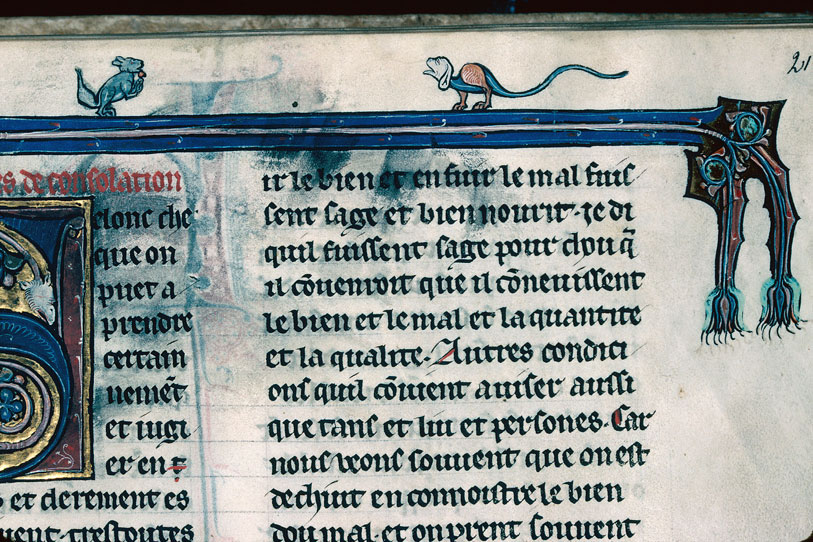 21
es de consolation
elonc che
que on
puet a
prendre
certain
nemēt
et iugi
er en
et clerement es
ment trestoutes
ir le bien et en fuir le mal fuis
sent sage et bien nourit·ie di
quil fuissent sage pour chou q̄
il cōuenroit que il cōneuissent
le bien et le mal et la quantite
et la qualite· Autres condici
ons quil cōuient auiser aussi
que tans et liu et persones· Car
nous veons souuent que on est
dechiut en connoistre le bien
dou mal·et on prent souuent